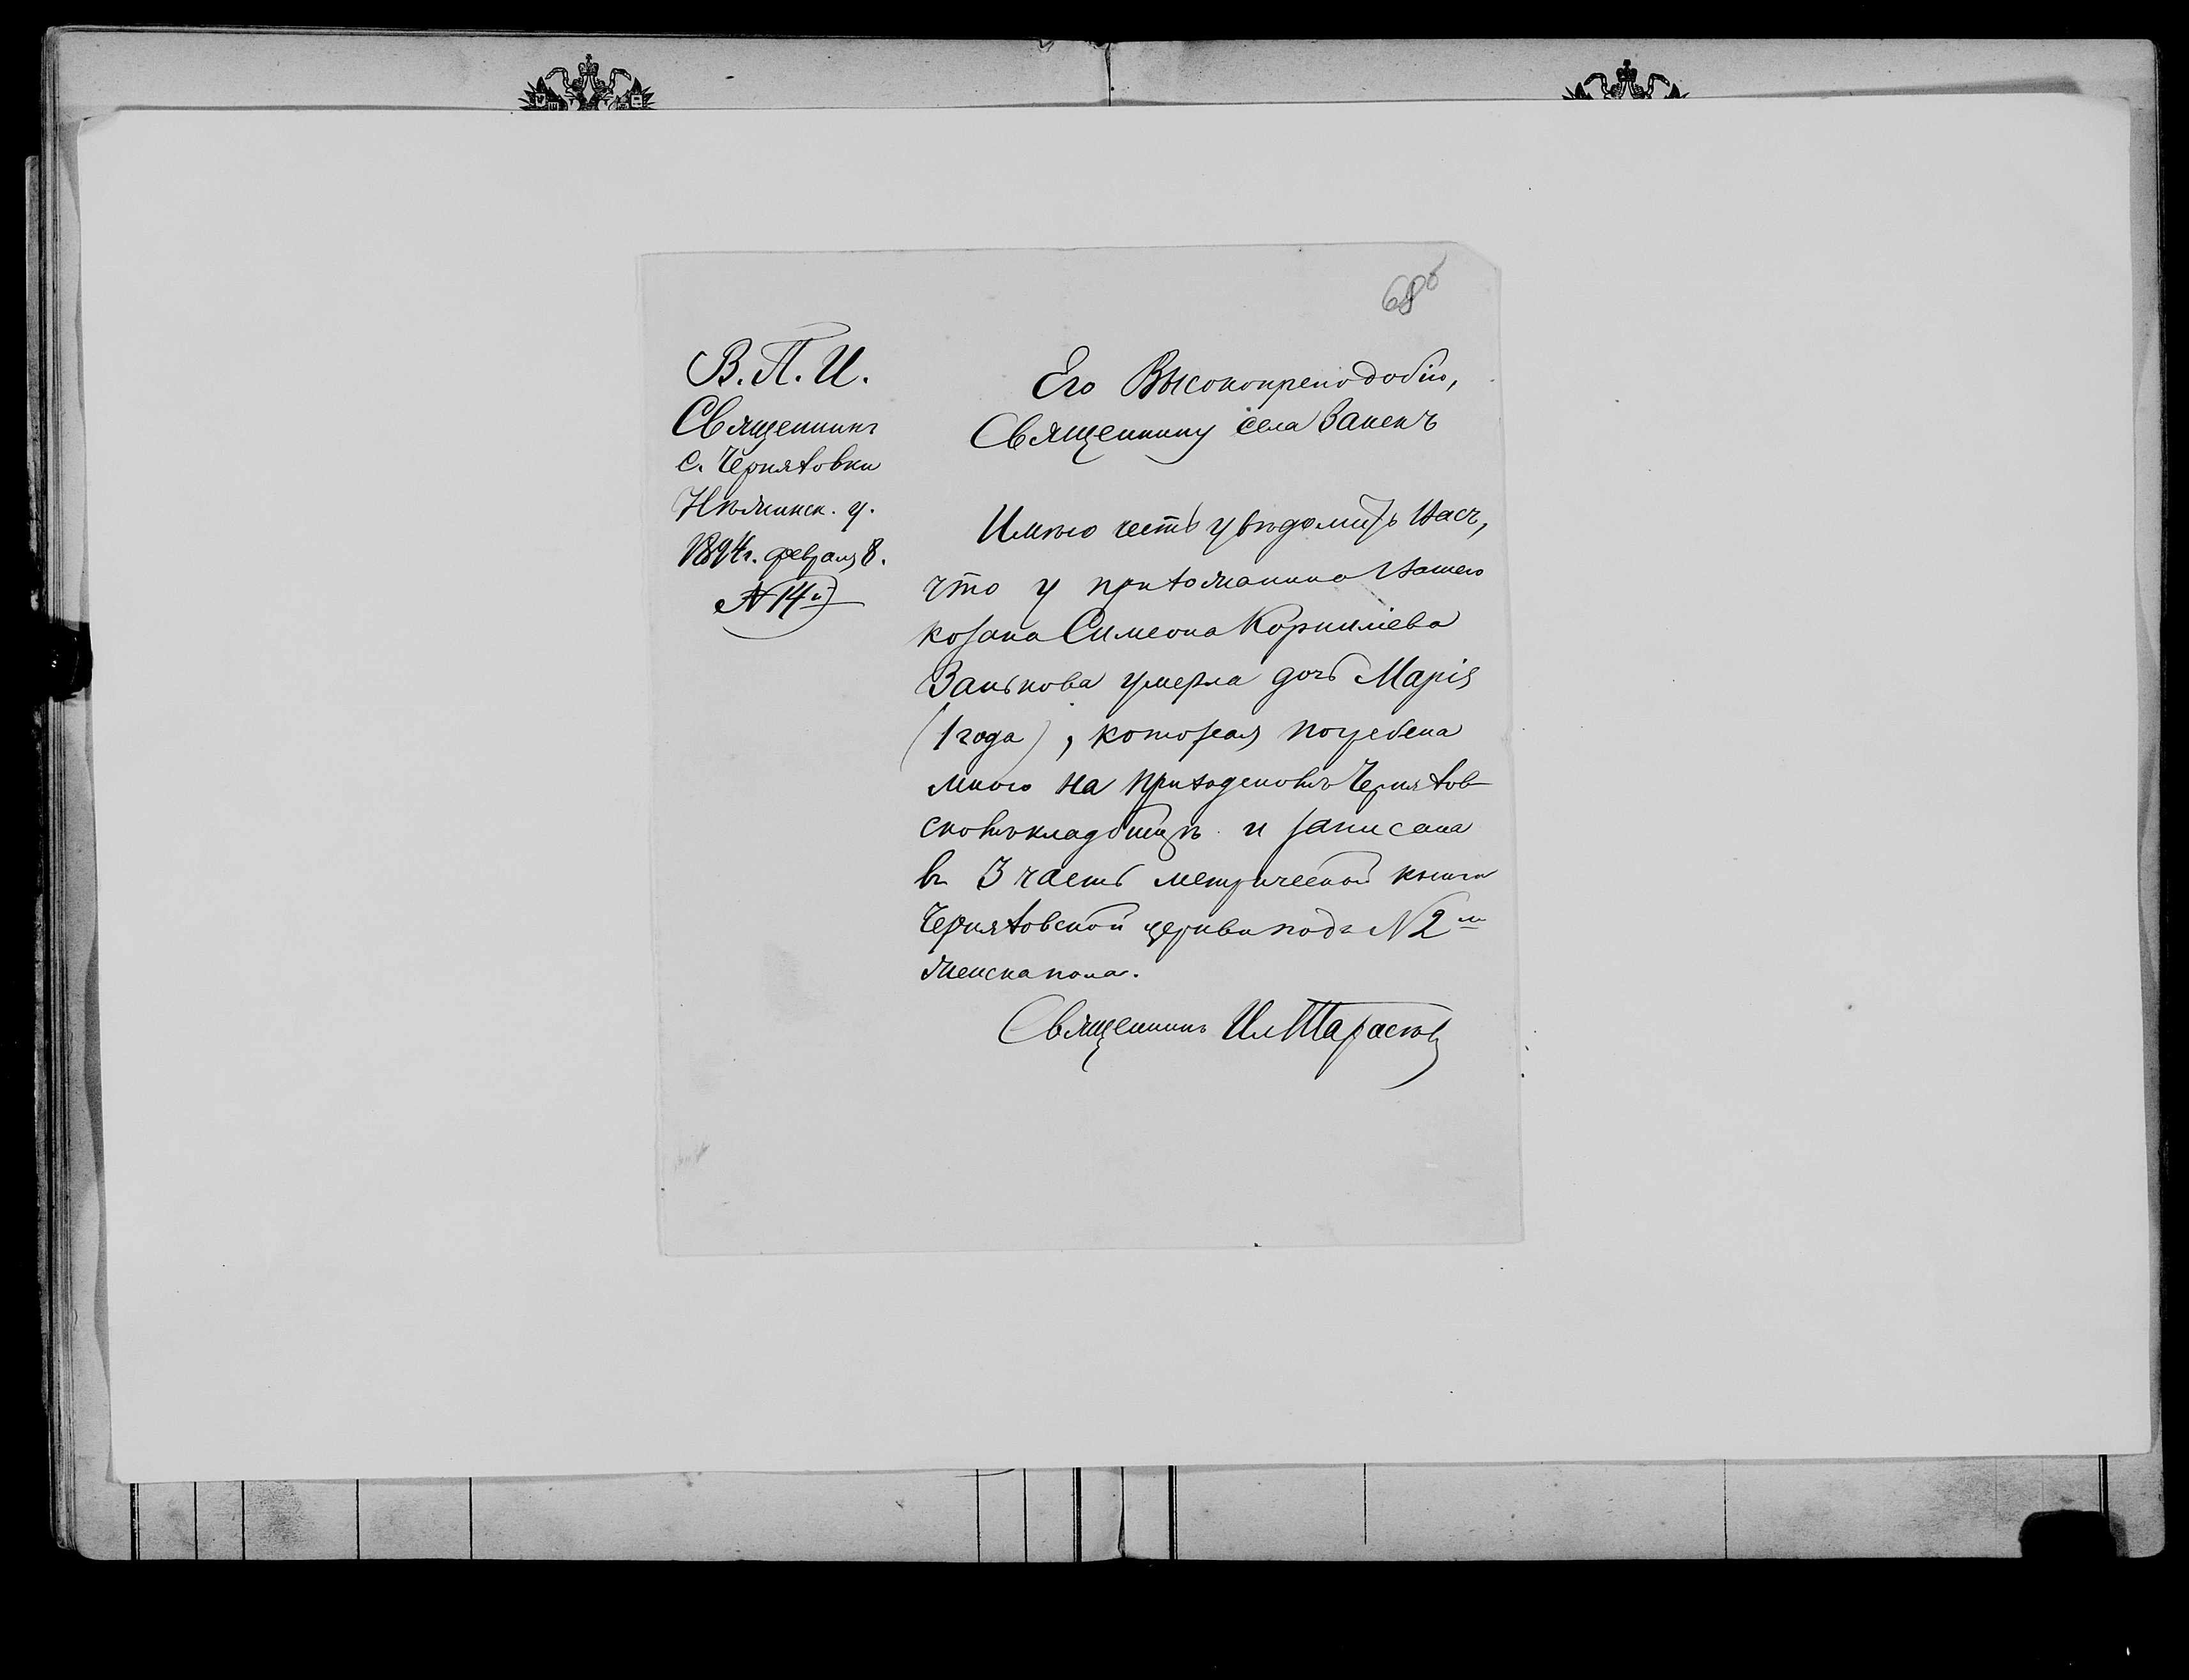 68б
В. П. И.
Священникъ
с. Черняховки
Нѣжинск. у.
1894 г. февраля 8.
№ 14й
Его Высокопреподобію,
Священнику села Ванекъ
Имѣю честь увѣдомить Васъ,
что у прихожанина Вашего
козака Симеона Корниліева
Ванькова умерла дочь Марія
(1 года), которая погребена
мною на приходскомъ Черняхов-
скомъ кладбищѣ и записана
въ 3 часть метрической книги
Черняховской церкви подъ № 2м
женска пола.
Священникъ Ил Тарасовъ